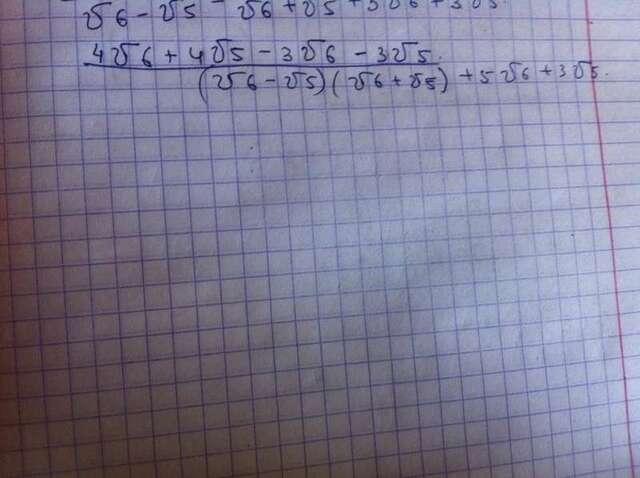 √6 - √5 - √6 + √5 + 5√6 + 3√5.
4√6 + 4√5 - 3√6 - 3√5.
(√6 - √5)(√6 + √5) + 5√6 + 3√5.